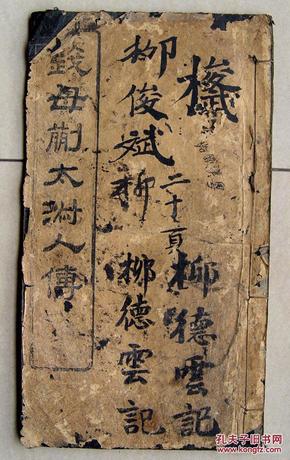 柳德雲記
二十頁
柳
柳俊斌 柳 柳德雲記
錢母蒯太淑人傳
孔夫子旧书网